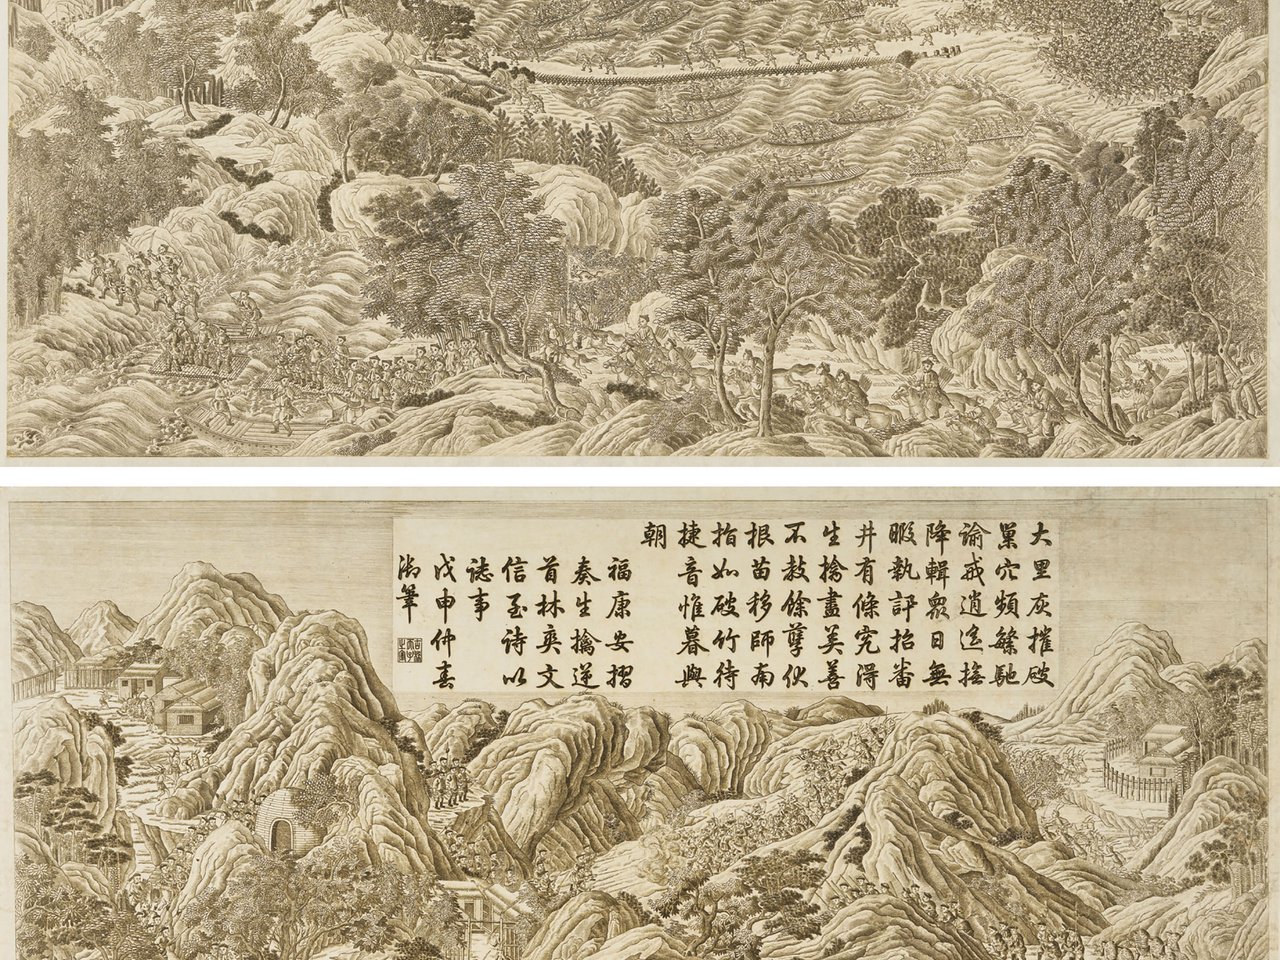 大里灰摧破
巢穴頻繁馳
諭戒逍遙撫
降輯眾日無
暇執訊招番
井有條究得
生擒盡美善
不教餘孽伏
根苗移師南
指如破竹待
捷音惟暮與
朝
福康安摺
奏生擒逆
首林爽文
信至詩以
誌事
戊申仲春
御筆